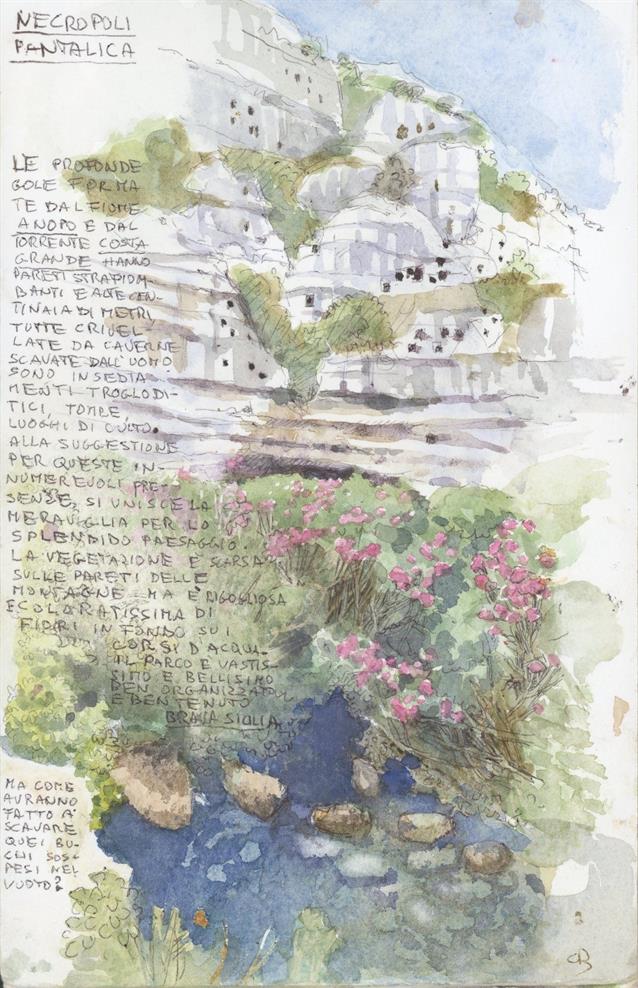 NECROPOLI
PANTALICA
LE PROFONDE
GOLE FORMA
TE DAL FIUME
ANAPO E DAL
TORRENTE COSTA
GRANDE HANNO
PARETI STRAPIOM-
BANTI E ALTE CEN-
TINAIA DI METRI
TUTTE CRIVEL-
LATE DA CAVERNE
SCAVATE DALL'UOMO
SONO INSEDIA-
MENTI TROGLODI-
TICI, TOMBE,
LUOGHI DI CULTO.
ALLA SUGGESTIONE
PER QUESTE IN-
NUMEREVOLI PRE-
SENZE, SI UNISCE LA
MERAVIGLIA PER LO
SPLENDIDO PAESAGGIO.
LA VEGETAZIONE E SCARSA
SULLE PARETI DELLE
MONTAGNE MA E RIGOGLIOSA
E COLORATISSIMA DI
FIORI IN FONDO SUI
CORSI D'ACQUA.
IL PARCO E VASTIS-
SIMO E BELLISSIMO
BEN ORGANIZZATO
E BEN TENUTO
BRAVA SICILIA
MA COME
AVRANNO
FATTO A
SCAVARE
QUEI BU-
CHI SOS-
PESI NEL
VUOTO?